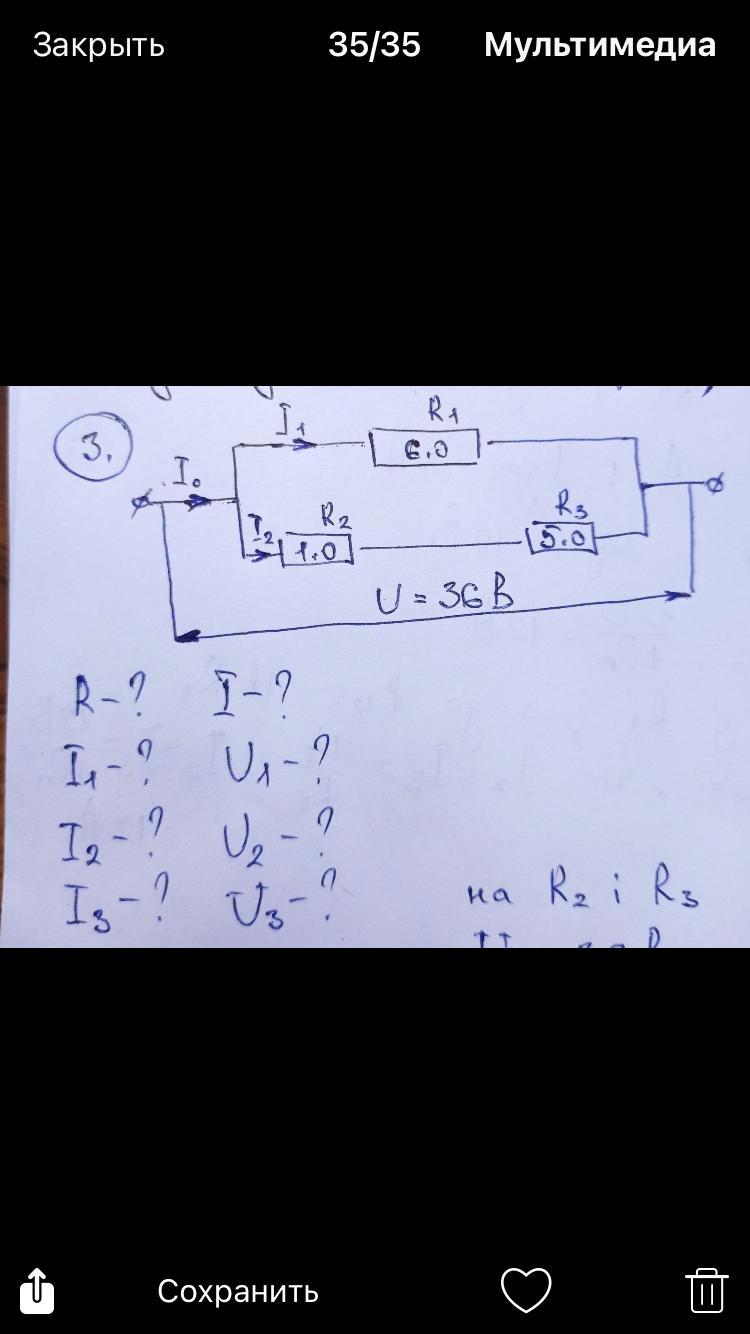 Закрыть 35/35 Мультимедиа
3.
I₁ R₁
6.0
I₀
I₂ R₂ R₃
1.0 5.0
U = 36 В
R - ? I - ?
I₁ - ? U₁ - ?
I₂ - ? U₂ - ?
I₃ - ? U₃ - ?
на R₂ і R₃
Сохранить